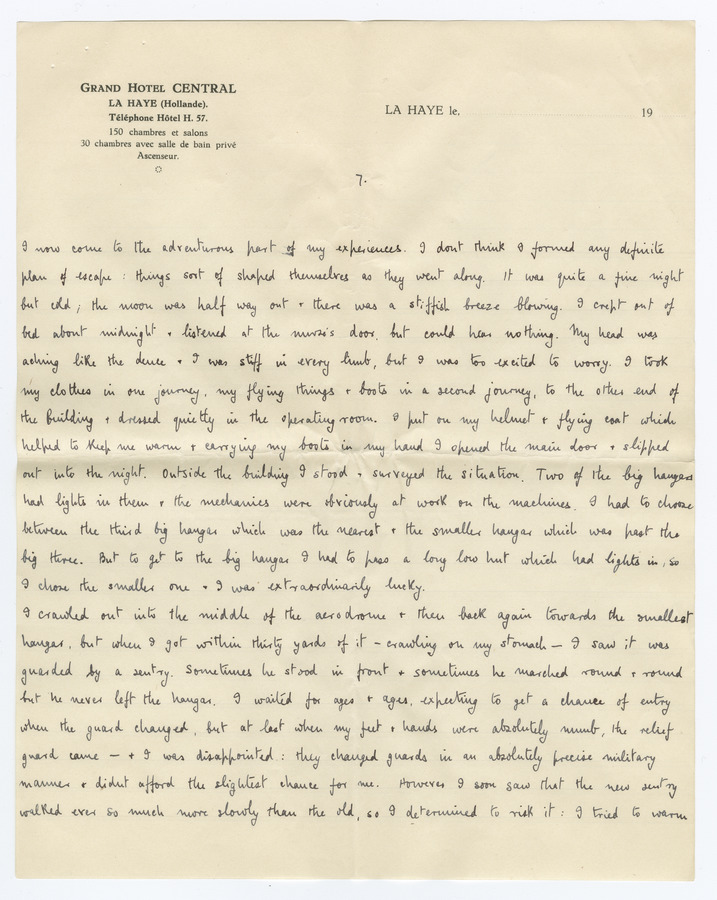 GRAND HOTEL CENTRAL
LA HAYE (Hollande).
Téléphone Hôtel H. 57.
150 chambres et salons
30 chambres avec salle de bain privé
Ascenseur.
LA HAYE le, 19
7.
I now come to the adventurous part of my experiences. I dont think I formed any definite
plan of escape : things sort of shaped themselves as they went along. It was quite a fine night
but cold ; the moon was half way out + there was a stiffish breeze blowing. I crept out of
bed about midnight + listened at the nurse's door, but could hear nothing. My head was
aching like the deuce + I was stiff in every limb, but I was too excited to worry. I took
my clothes in one journey, my flying things + boots in a second journey, to the other end of
the building + dressed quietly in the operating room. I put on my helmet + flying coat which
helped to keep me warm + carrying my boots in my hand I opened the main door + slipped
out into the night. Outside the building I stood + surveyed the situation. Two of the big hangars
had lights in them + the mechanics were obviously at work on the machines. I had to choose
between the third big hangar which was the nearest + the smaller hangar which was past the
big three. But to get to the big hangar I had to pass a long low hut which had lights in, so
I chose the smaller one + I was extraordinarily lucky.
I crawled out into the middle of the aerodrome + then back again towards the smallest
hangar, but when I got within thirty yards of it – crawling on my stomach – I saw it was
guarded by a sentry. Sometimes he stood in front + sometimes he marched round + round
but he never left the hangar. I waited for ages + ages, expecting to get a chance of entry
when the guard changed, but at last when my feet + hands were absolutely numb, the relief
guard came – + I was disappointed : they changed guards in an absolutely precise military
manner + didnt afford the slightest chance for me. However I soon saw that the new sentry
walked ever so much more slowly than the old, so I determined to risk it : I tried to warm